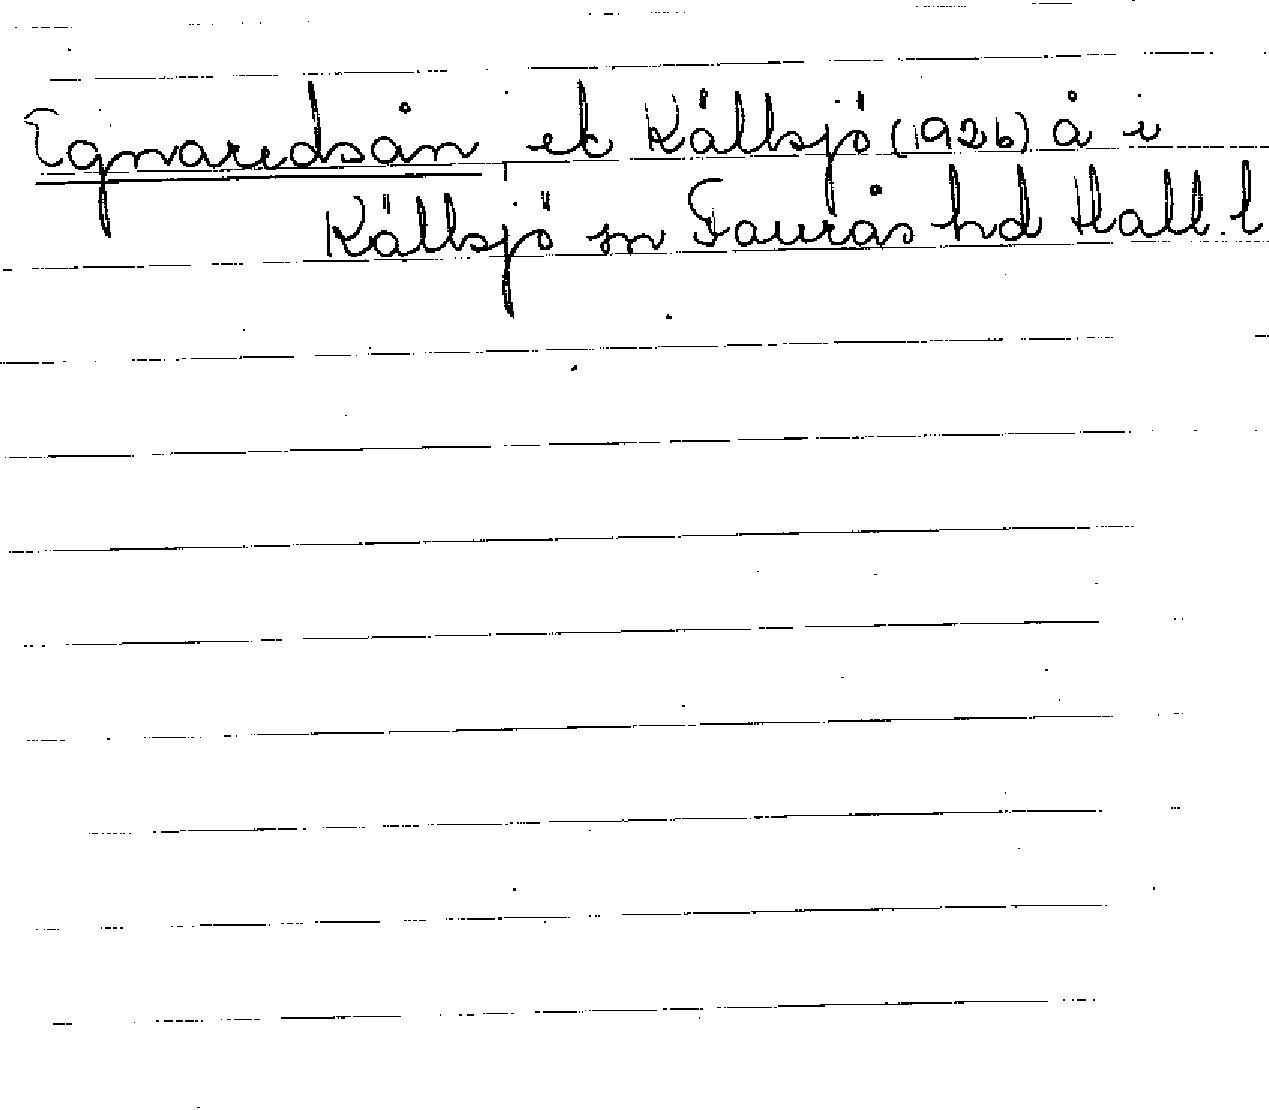 Egnaredsån ek Källsjö (1926) å i
Källsjö sn Faurås hd Hall. l